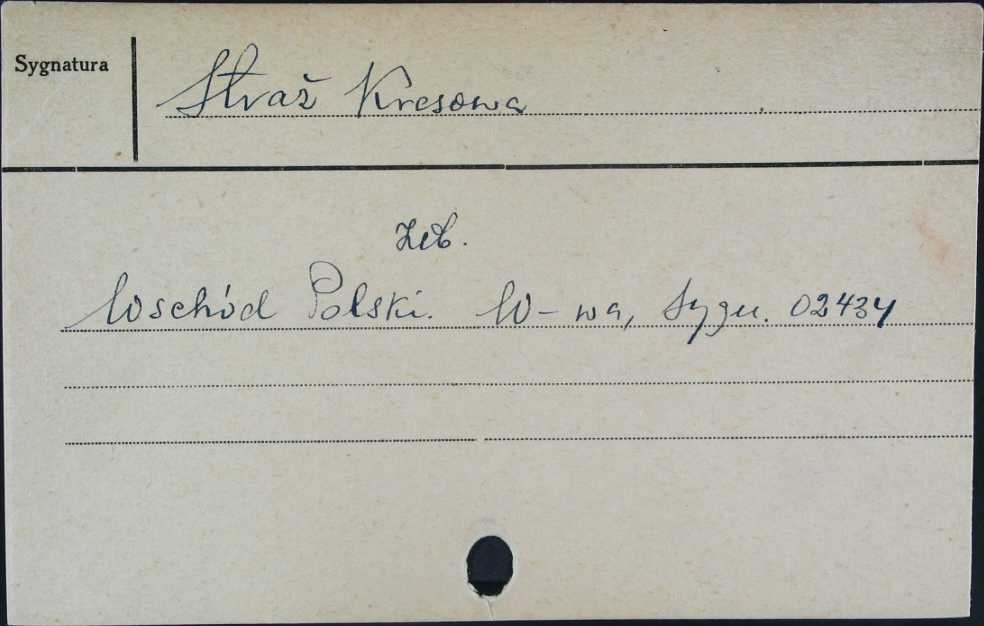 Sygnatura
Straż Kresowa
zeb.
Wschód Polski. W-wa, Sygn. 02434